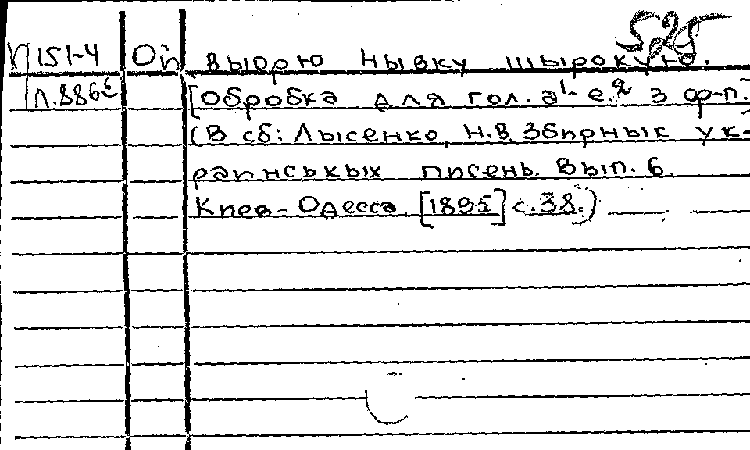 525
П151-4 Ой выорю нывку шырокую.
[Обробка для гол. а¹-е.² з ф-п.]
(В сб: Лысенко, Н.В. Збирнык ук-
раинськых писень. Вып. 6.
Киев-Одесса, [1895] с.38.)